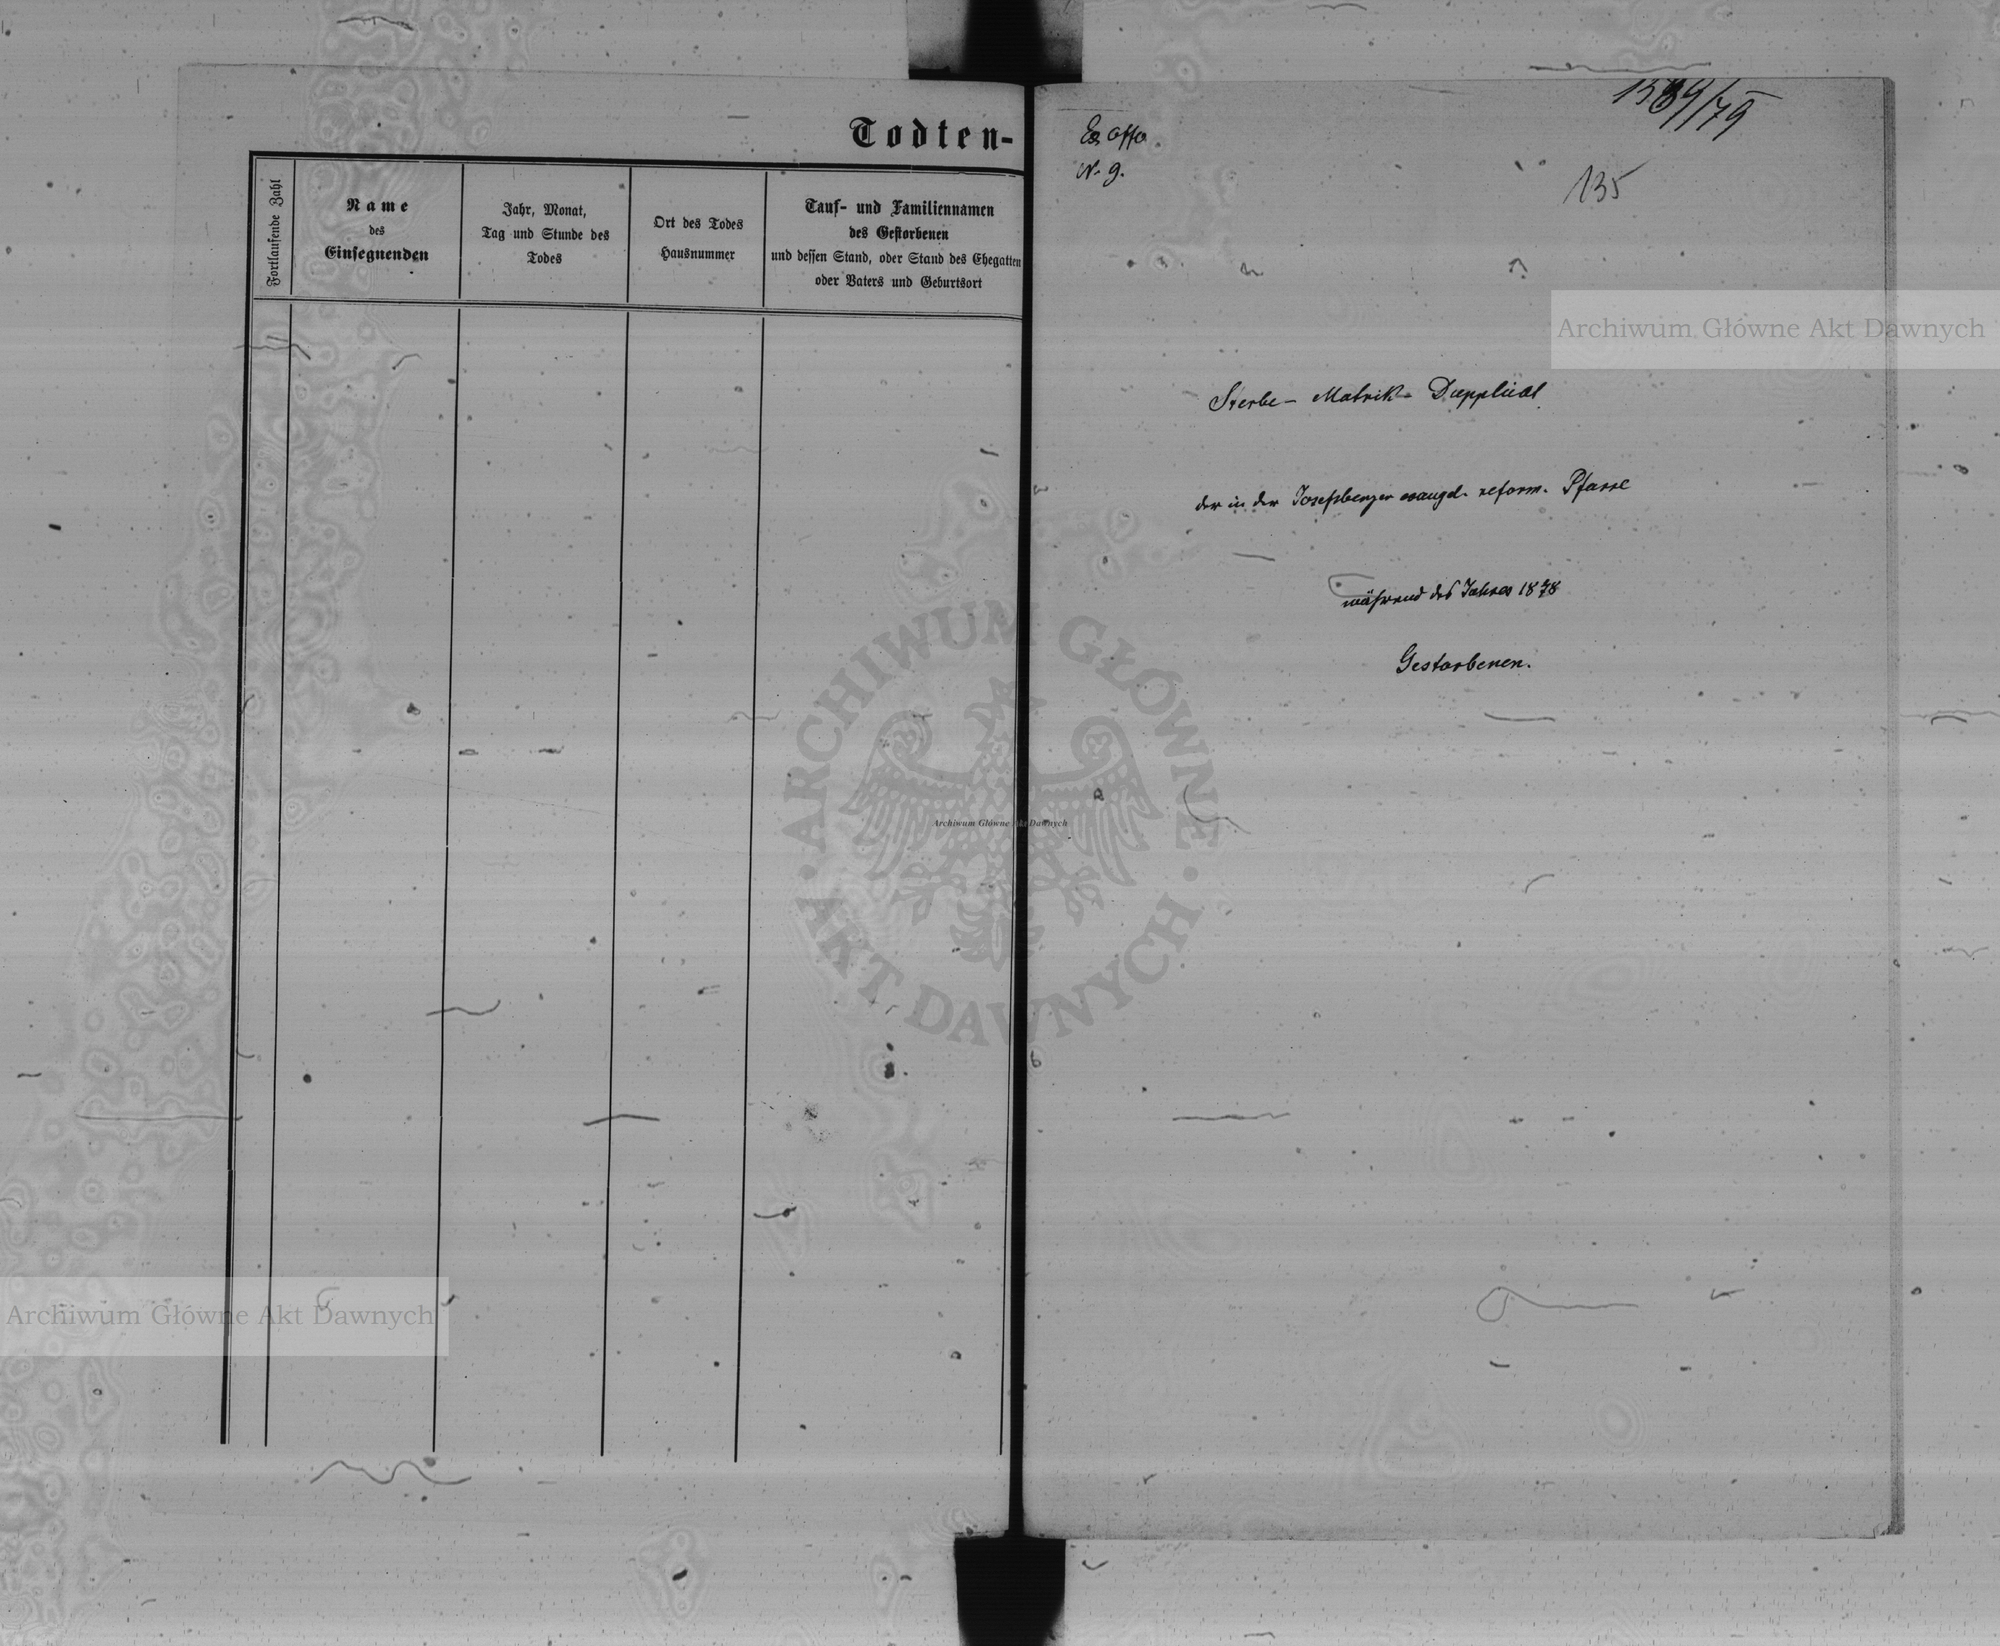 Todten-
Fortlaufende Zahl
Name
des
Einsegnenden
Jahr, Monat,
Tag und Stunde des
Todes
Ort des Todes
Hausnummer
Tauf- und Familiennamen
des Gestorbenen
und dessen Stand, oder Stand des Ehegatten
oder Vaters und Geburtsort
Ex offo.
N. 9.
/79
135
Sterbe- Matrik- Dupplicat
der in der Josefsberger evangel. reform. Pfarre
während des Jahres 1878
Gestorbenen.
Archiwum Główne Akt Dawnych
ARCHIWUM GŁÓWNE
AKT DAWNYCH
Archiwum Główne Akt Dawnych
Archiwum Główne Akt Dawnych